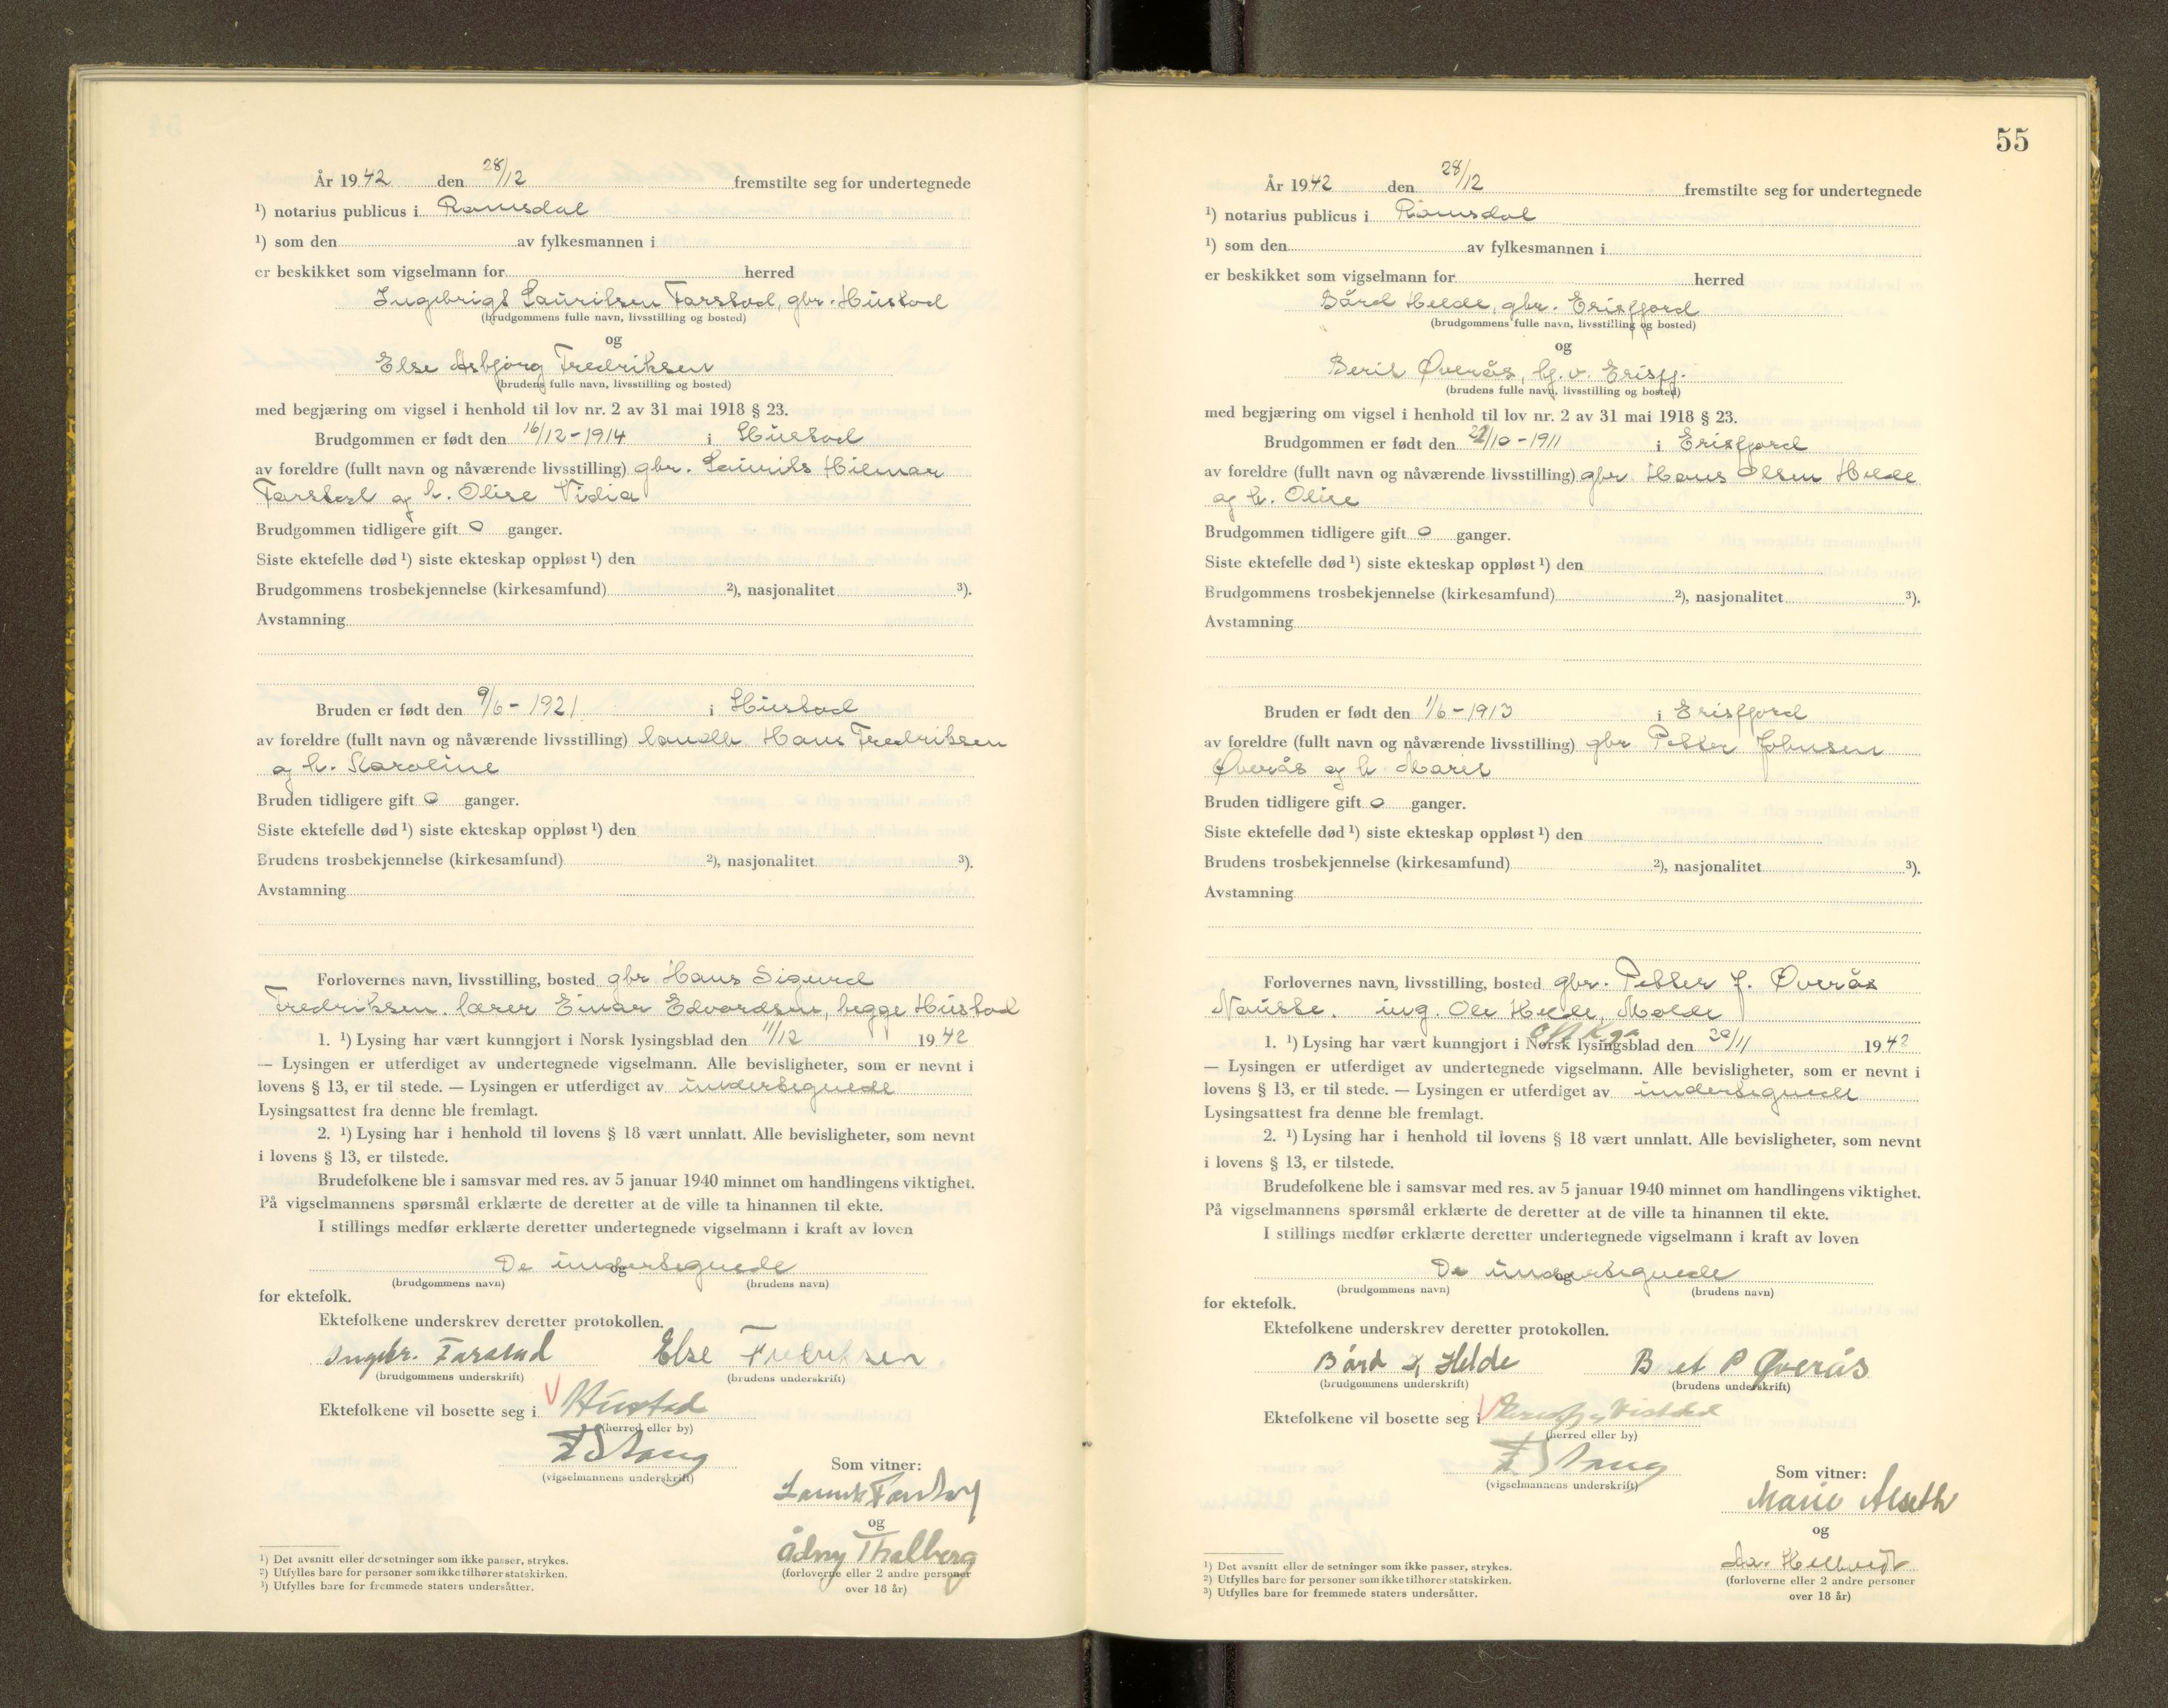 År 1942 den 28/12 fremstilte seg for undertegnede
¹) notarius publicus i Romsdal
¹) som den av fylkesmannen i
er beskikket som vigselmann for herred
Ingebrigt Lauritsen Farstad, gbr. Hustad
(brudgommens fulle navn, livsstilling og bosted)
og
Else Asbjørg Fredriksen
(brudens fulle navn, livsstilling og bosted)
med begjæring om vigsel i henhold til lov nr. 2 av 31 mai 1918 § 23.
Brudgommen er født den 16/12-1914 i Hustad
av foreldre (fullt navn og nåværende livsstilling) gbr. Laurits Hilmar
Farstad og h. Olise Vidia
Brudgommen tidligere gift 0 ganger.
Siste ektefelle død ¹) siste ekteskap oppløst ¹) den
Brudgommens trosbekjennelse (kirkesamfund) ²), nasjonalitet ³).
Avstamning
Bruden er født den 9/6-1921 i Hustad
av foreldre (fullt navn og nåværende livsstilling) landh Hans Fredriksen
og h. Karoline
Bruden tidligere gift 0 ganger.
Siste ektefelle død ¹) siste ekteskap oppløst ¹) den
Brudens trosbekjennelse (kirkesamfund) ²), nasjonalitet ³).
Avstamning
Forlovernes navn, livsstilling, bosted gbr Hans Sigurd
Fredriksen. lærer Einar Edvardsen, begge Hustad
1. ¹) Lysing har vært kunngjort i Norsk lysingsblad den 11/12 1942
— Lysingen er utferdiget av undertegnede vigselmann. Alle bevisligheter, som er nevnt i
lovens § 13, er til stede. — Lysingen er utferdiget av undertegnede
Lysingsattest fra denne ble fremlagt.
2. ¹) Lysing har i henhold til lovens § 18 vært unnlatt. Alle bevisligheter, som nevnt
i lovens § 13, er tilstede.
Brudefolkene ble i samsvar med res. av 5 januar 1940 minnet om handlingens viktighet.
På vigselmannens spørsmål erklærte de deretter at de ville ta hinannen til ekte.
I stillings medfør erklærte deretter undertegnede vigselmann i kraft av loven
De undertegnede
og
(brudgommens navn) (brudens navn)
for ektefolk.
Ektefolkene underskrev deretter protokollen.
Ingebr. Farstad Else Fredriksen
(brudgommens underskrift) (brudens underskrift)
Ektefolkene vil bosette seg i Hustad
(herred eller by)
(vigselmannens underskrift)
Som vitner:
og
Ådny Thalberg
(forloverne eller 2 andre personer
over 18 år)
¹) Det avsnitt eller de setninger som ikke passer, strykes.
²) Utfylles bare for personer som ikke tilhører statskirken.
³) Utfylles bare for fremmede staters undersåtter.
55
År 1942 den 28/12 fremstilte seg for undertegnede
¹) notarius publicus i Romsdal
¹) som den av fylkesmannen i
er beskikket som vigselmann for herred
Bård Helde, gbr. Erisfjord
(brudgommens fulle navn, livsstilling og bosted)
og
Berit Øverås, hj. v. Erisfj.
(brudens fulle navn, livsstilling og bosted)
med begjæring om vigsel i henhold til lov nr. 2 av 31 mai 1918 § 23.
Brudgommen er født den /10-1911 i Erisfjord
av foreldre (fullt navn og nåværende livsstilling) gbr. Hans Olsen Helde
og h. Olise
Brudgommen tidligere gift 0 ganger.
Siste ektefelle død ¹) siste ekteskap oppløst ¹) den
Brudgommens trosbekjennelse (kirkesamfund) ²), nasjonalitet ³).
Avstamning
Bruden er født den 1/6-1913 i Erisfjord
av foreldre (fullt navn og nåværende livsstilling) gbr Petter Johnsen
Øverås og h Marit
Bruden tidligere gift 0 ganger.
Siste ektefelle død ¹) siste ekteskap oppløst ¹) den
Brudens trosbekjennelse (kirkesamfund) ²), nasjonalitet ³).
Avstamning
Forlovernes navn, livsstilling, bosted gbr. Petter J. Øverås
Nauste. ing. Ole Helde, Molde
1. ¹) Lysing har vært kunngjort i Norsk lysingsblad den /11 1942
— Lysingen er utferdiget av undertegnede vigselmann. Alle bevisligheter, som er nevnt i
lovens § 13, er til stede. — Lysingen er utferdiget av undertegnede
Lysingsattest fra denne ble fremlagt.
2. ¹) Lysing har i henhold til lovens § 18 vært unnlatt. Alle bevisligheter, som nevnt
i lovens § 13, er tilstede.
Brudefolkene ble i samsvar med res. av 5 januar 1940 minnet om handlingens viktighet.
På vigselmannens spørsmål erklærte de deretter at de ville ta hinannen til ekte.
I stillings medfør erklærte deretter undertegnede vigselmann i kraft av loven
De undertegnede
og
(brudgommens navn) (brudens navn)
for ektefolk.
Ektefolkene underskrev deretter protokollen.
Bård H Helde Beret P Øverås
(brudgommens underskrift) (brudens underskrift)
Ektefolkene vil bosette seg i
(herred eller by)
(vigselmannens underskrift)
Som vitner:
Marie Alseth
og
(forloverne eller 2 andre personer
over 18 år)
¹) Det avsnitt eller de setninger som ikke passer, strykes.
²) Utfylles bare for personer som ikke tilhører statskirken.
³) Utfylles bare for fremmede staters undersåtter.